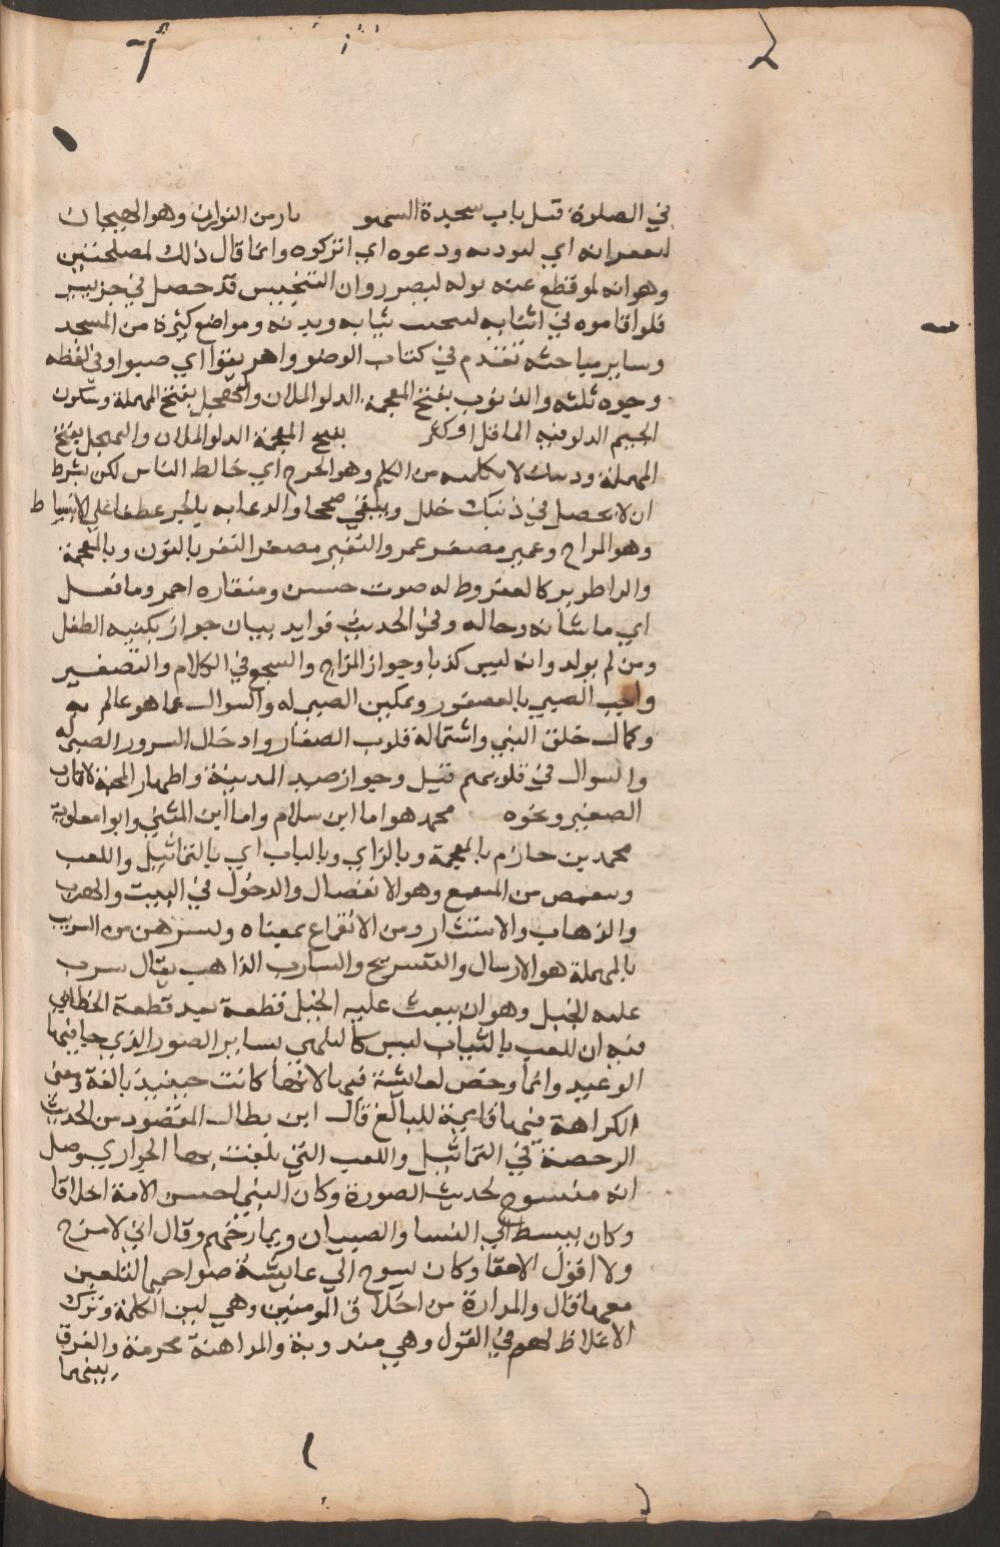 في الصلوة قبل باب سجدة السهو ثار من الثوران وهو الهيجان
ليقعوا به اي ليوذيه ودعوه اي اتركوه وانما قال ذلك لمصلحتين
وهو انه لو قطع عنه بوله لتضرر وان التنجيس قد حصل في جزيسير
فلو اقاموه في اثنايه لتنجست ثيابه وبدنه ومواضع كثيرة من المسجد
وساير مباحثه تقدم في كتاب الوضو واهريقوا اي صبوا وفي لفظه
وجوه ثلثه والذنوب بفتح المعجمة الدلو الملان والسجل بفتح المهملة وسكون
الجيم الدلو فيه الما قل او كثر بفتح المعجمة الدلو الملان والسجل بفتح
المهملة ودينك لا تكلمنه من الكلم وهو الجرح اي خالط الناس لكن بشرط
ان لا يحصل في دينك خلل ويبقى صحيحا والدعابه بالجر عطفا على الانبساط
وهو المزاح وعمير مصغر عمر والنغير مصغر النغر بالنون وبالمعجمة
والرا طوير كالعصفور له صوت حسن ومنقاره احمر وما فعل
اي ما شانه وحاله وفي الحديث فوايد بيان جواز تكنيه الطفل
ومن لم يولد وانه ليس كذبا وجواز المزاح والسجع في الكلام والتصغير
ولعب الصبي بالعصفور وتمكين الصبي له والسوال عما هو عالم به
وكمال خلق النبي واستمالة قلوب الصغار وادخال السرور الصبي له
والسوال في قلوبهم قيل وجواز صيد المدينة واظهار المحبة لاقارب
الصغير ونحوه محمد هو اما ابن سلام واما ابن المثنى وابو معاوية
محمد بن حازم بالمعجمة وبالزاي وبالباب اي بالتماثيل واللعب
وينقمعن من التقمع وهو الانفصال والدخول في البيت والهرب
والذهاب والاستتار ومن الانقماع بمعناه وليسربهن من التسريب
بالمهملة هو الارسال والتسريح والسارب الذاهب يقال سرب
عليه الخيل وهو ان يبعث عليه الخيل قطعة بعد قطعة الخطابي
فيه ان اللعب بالبنات ليس كالتلهي بساير الصور الذي جا فيها
الوعيد وانما رخص لعايشة فيها لانها كانت حينيذ بالغة ومعنى
الكراهة فيها قايمة للبالغ قال ابن بطال المقصود من الحديث
الرخصة في التماثيل واللعب التي تلعب بها الجواري وقيل
انه منسوخ لحديث الصورة وكان النبي احسن الامة اخلاقا
وكان ينبسط الي النسا والصبيان ويمازحهم وقال اني لامزح
ولا اقول الا حقا وكان يسرح الي عايشة صواحبها لتلعبن
معها قال والمداراة من اخلاق المومنين وهي لين الكلمة وترك
الاغلاظ لهم في القول وهي مندوبة والمداهنة محرمة والفرق
بينهما